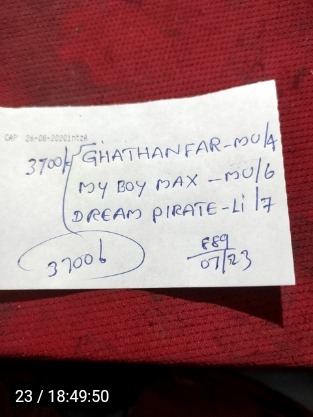 CAP 26-08-2020
3700b GHATHANFAR-MU/4
MY BOY MAX - MU/6
DREAM PIRATE-Li/7
3700b
07/23
23 / 18:49:50